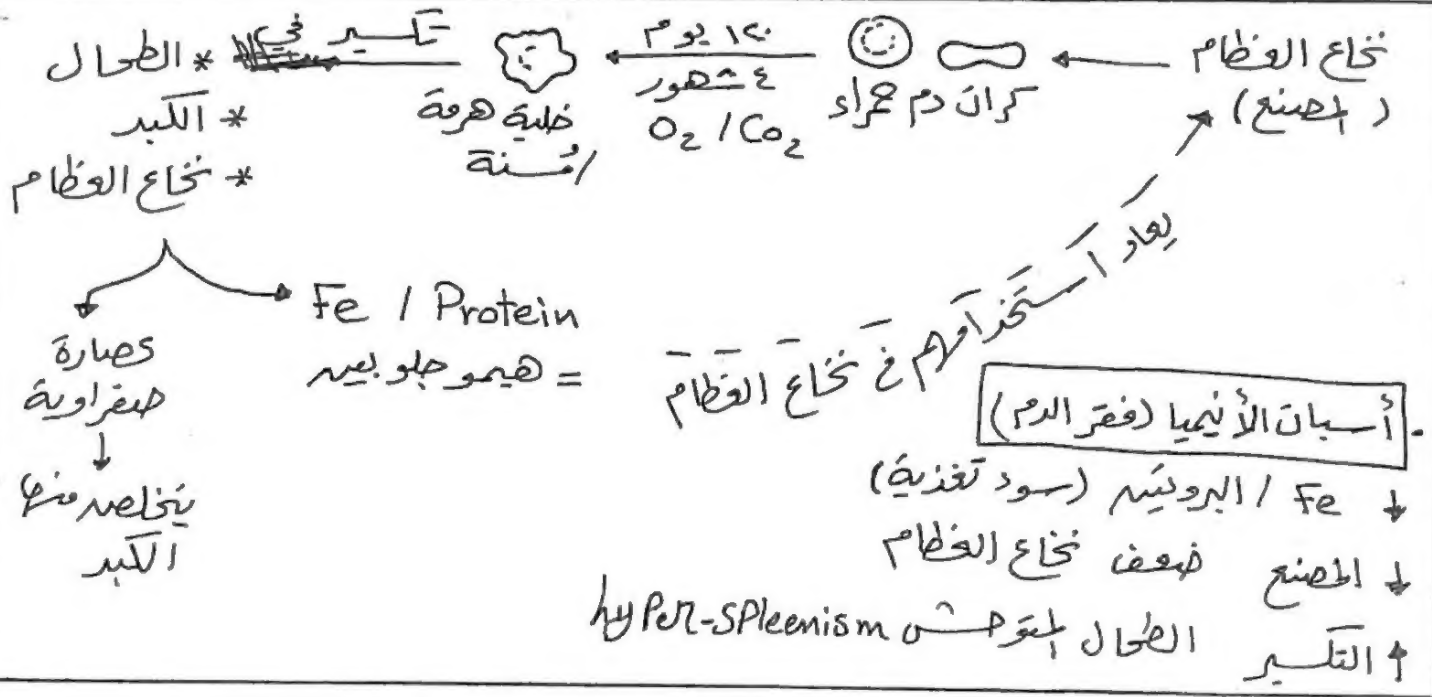 نخاع العظام
(المصنع)
كرات دم حمراء
١٢٠ يوم
٤ شهور
O₂ / Co₂
خلية هرمة
/مُسنة
تكسير في
* الطحال
* الكبد
* نخاع العظام
Fe / Protein
= هيموجلوبين
عصارة
صفراوية
يتخلص منها
الكبد
يعاد استخدامهم في نخاع العظام
. أسباب الأنيميا (فقر الدم)
↓ Fe / البروتين (سوء تغذية)
↓ المصنع ضعف نخاع العظام
↑ التكسير الطحال المتوحش hyper-spleenism